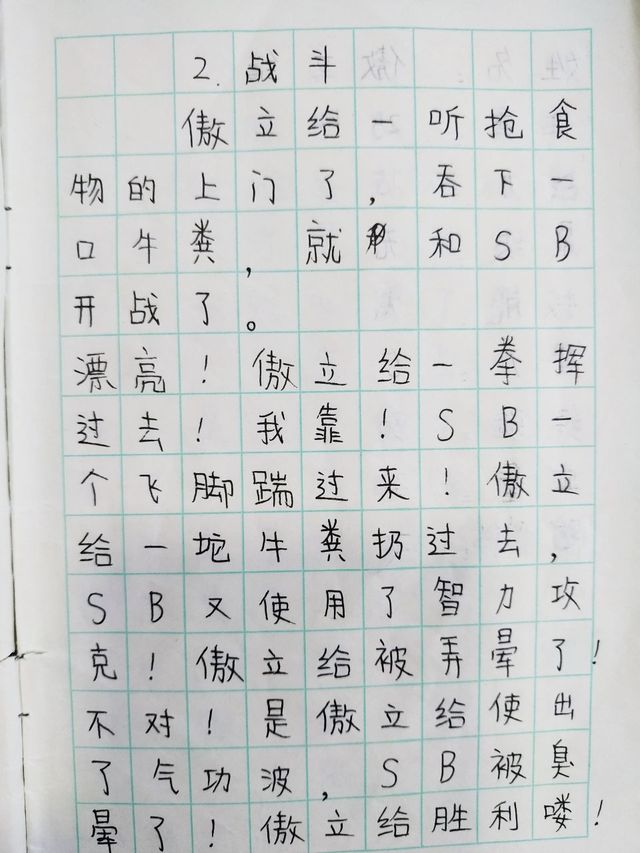 2. 战斗
傲立给一听抢食
物的上门了，吞下一
口牛粪，就和SB
开战了。
漂亮！傲立给一拳挥
过去！我靠！SB一
个飞脚踹过来！傲立
给一坨牛粪扔过去，
SB又使用了智力攻
克！傲立给被弄晕了！
不对！是傲立给使出
了气功波，SB被臭
晕了！傲立给胜利喽！